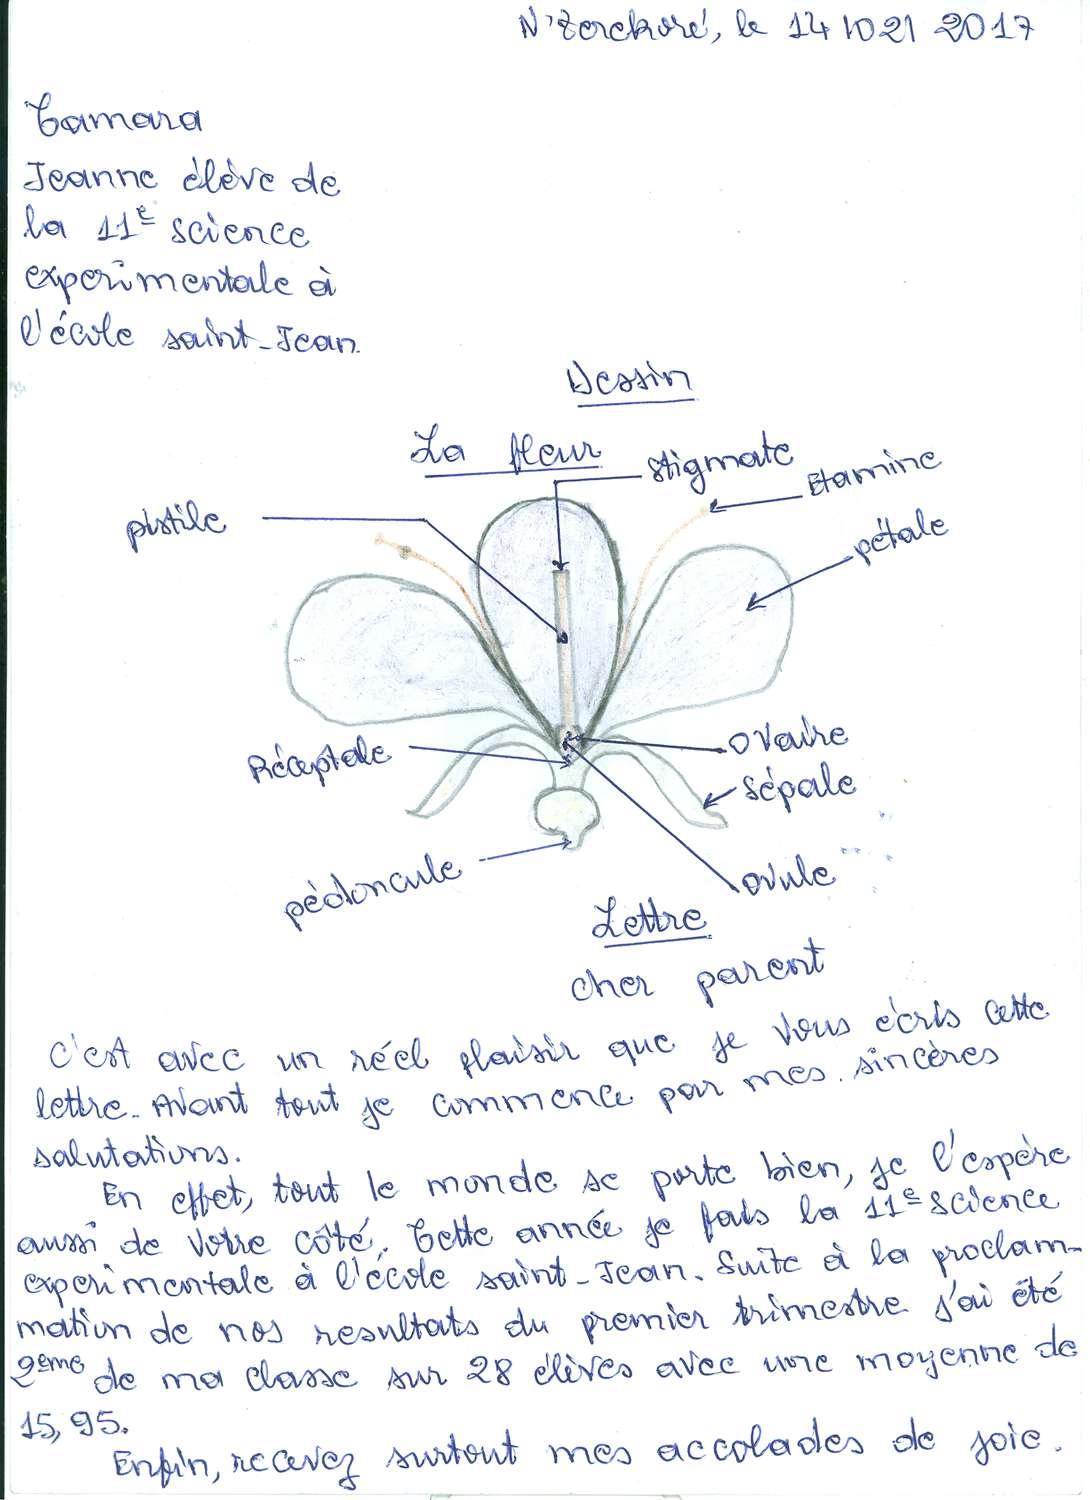 N'Zérékoré, le 14 1021 2017
Camara
Jeanne élève de
la 11e science
experimentale à
l'école saint-Jean.
Dessin
La fleur
stigmate
Etamine
pistile
pétale
Réceptale
Ovaire
Sépale
pédoncule
ovule
Lettre
cher parent
C'est avec un réel plaisir que je vous écris cette
lettre. Avant tout je commence par mes sincères
salutations.
En effet, tout le monde se porte bien, je l'espère
aussi de votre côté. Cette année je fais la 11e science
experimentale à l'école saint-Jean. Suite à la proclam-
mation de nos resultats du premier trimestre j'ai été
2eme de ma classe sur 28 élèves avec une moyenne de
15,95.
Enfin, recevez surtout mes accolades de joie.